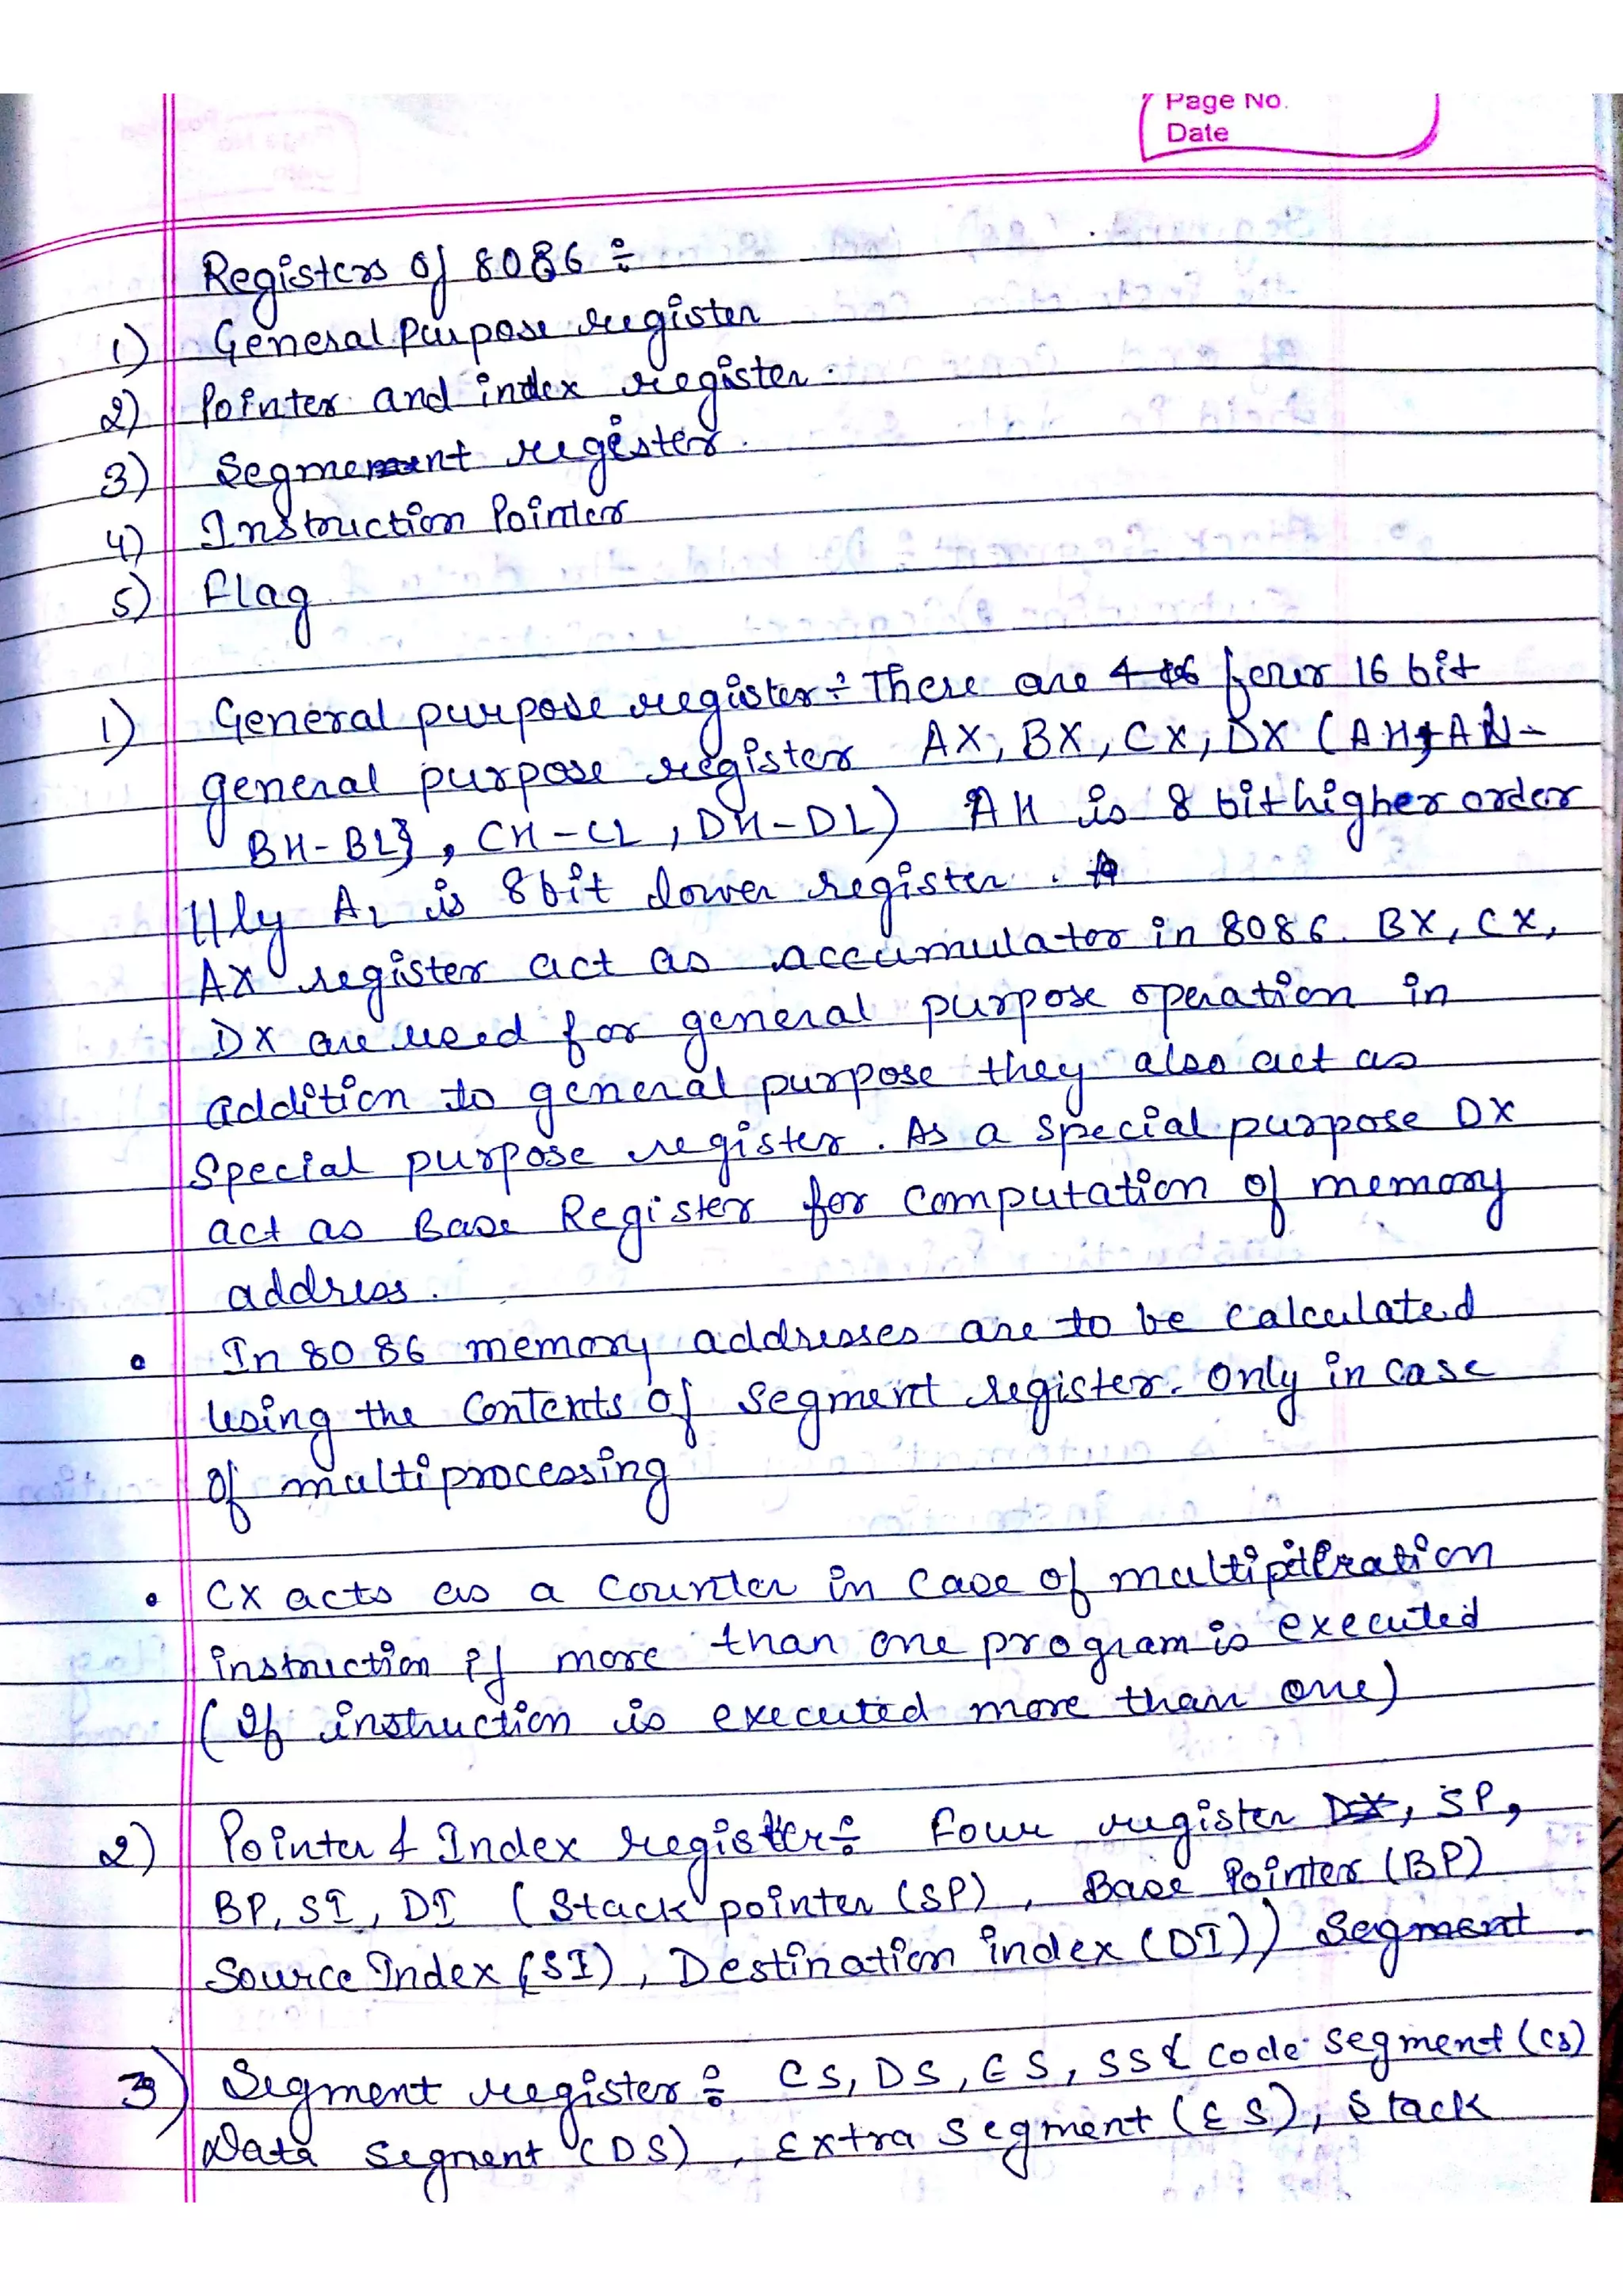 Page No.
Date
Registers of 8086 ÷
1) General Purpose register
2) Pointer and index register.
3) Segment register.
4) Instruction Pointer
5) Flag
1) General purpose register ÷ There are 4 four 16 bit
general purpose register AX, BX, CX, DX (AH, AL -
BH-BL}, CH-CL, DH-DL) AH is 8 bit higher order
lly AL is 8 bit lower register.
AX register act as accumulator in 8086. BX, CX,
DX are used for general purpose operation in
addition to general purpose they also act as
Special purpose register. As a special purpose DX
act as Base Register for computation of memory
address.
• In 8086 memory addresses are to be calculated
using the contents of segment register. Only in case
of multiprocessing
• CX acts as a counter in case of
instruction if more than one program is executed
(If instruction is executed more than one)
2) Pointer & Index register ÷ Four register DX, SP,
BP, SI, DI (Stack pointer (SP), Base Pointer (BP)
Source Index (SI), Destination index (DI)) Segment
3) Segment register ÷ CS, DS, ES, SS & Code segment (CS)
Data segment (DS), Extra segment (ES), Stack